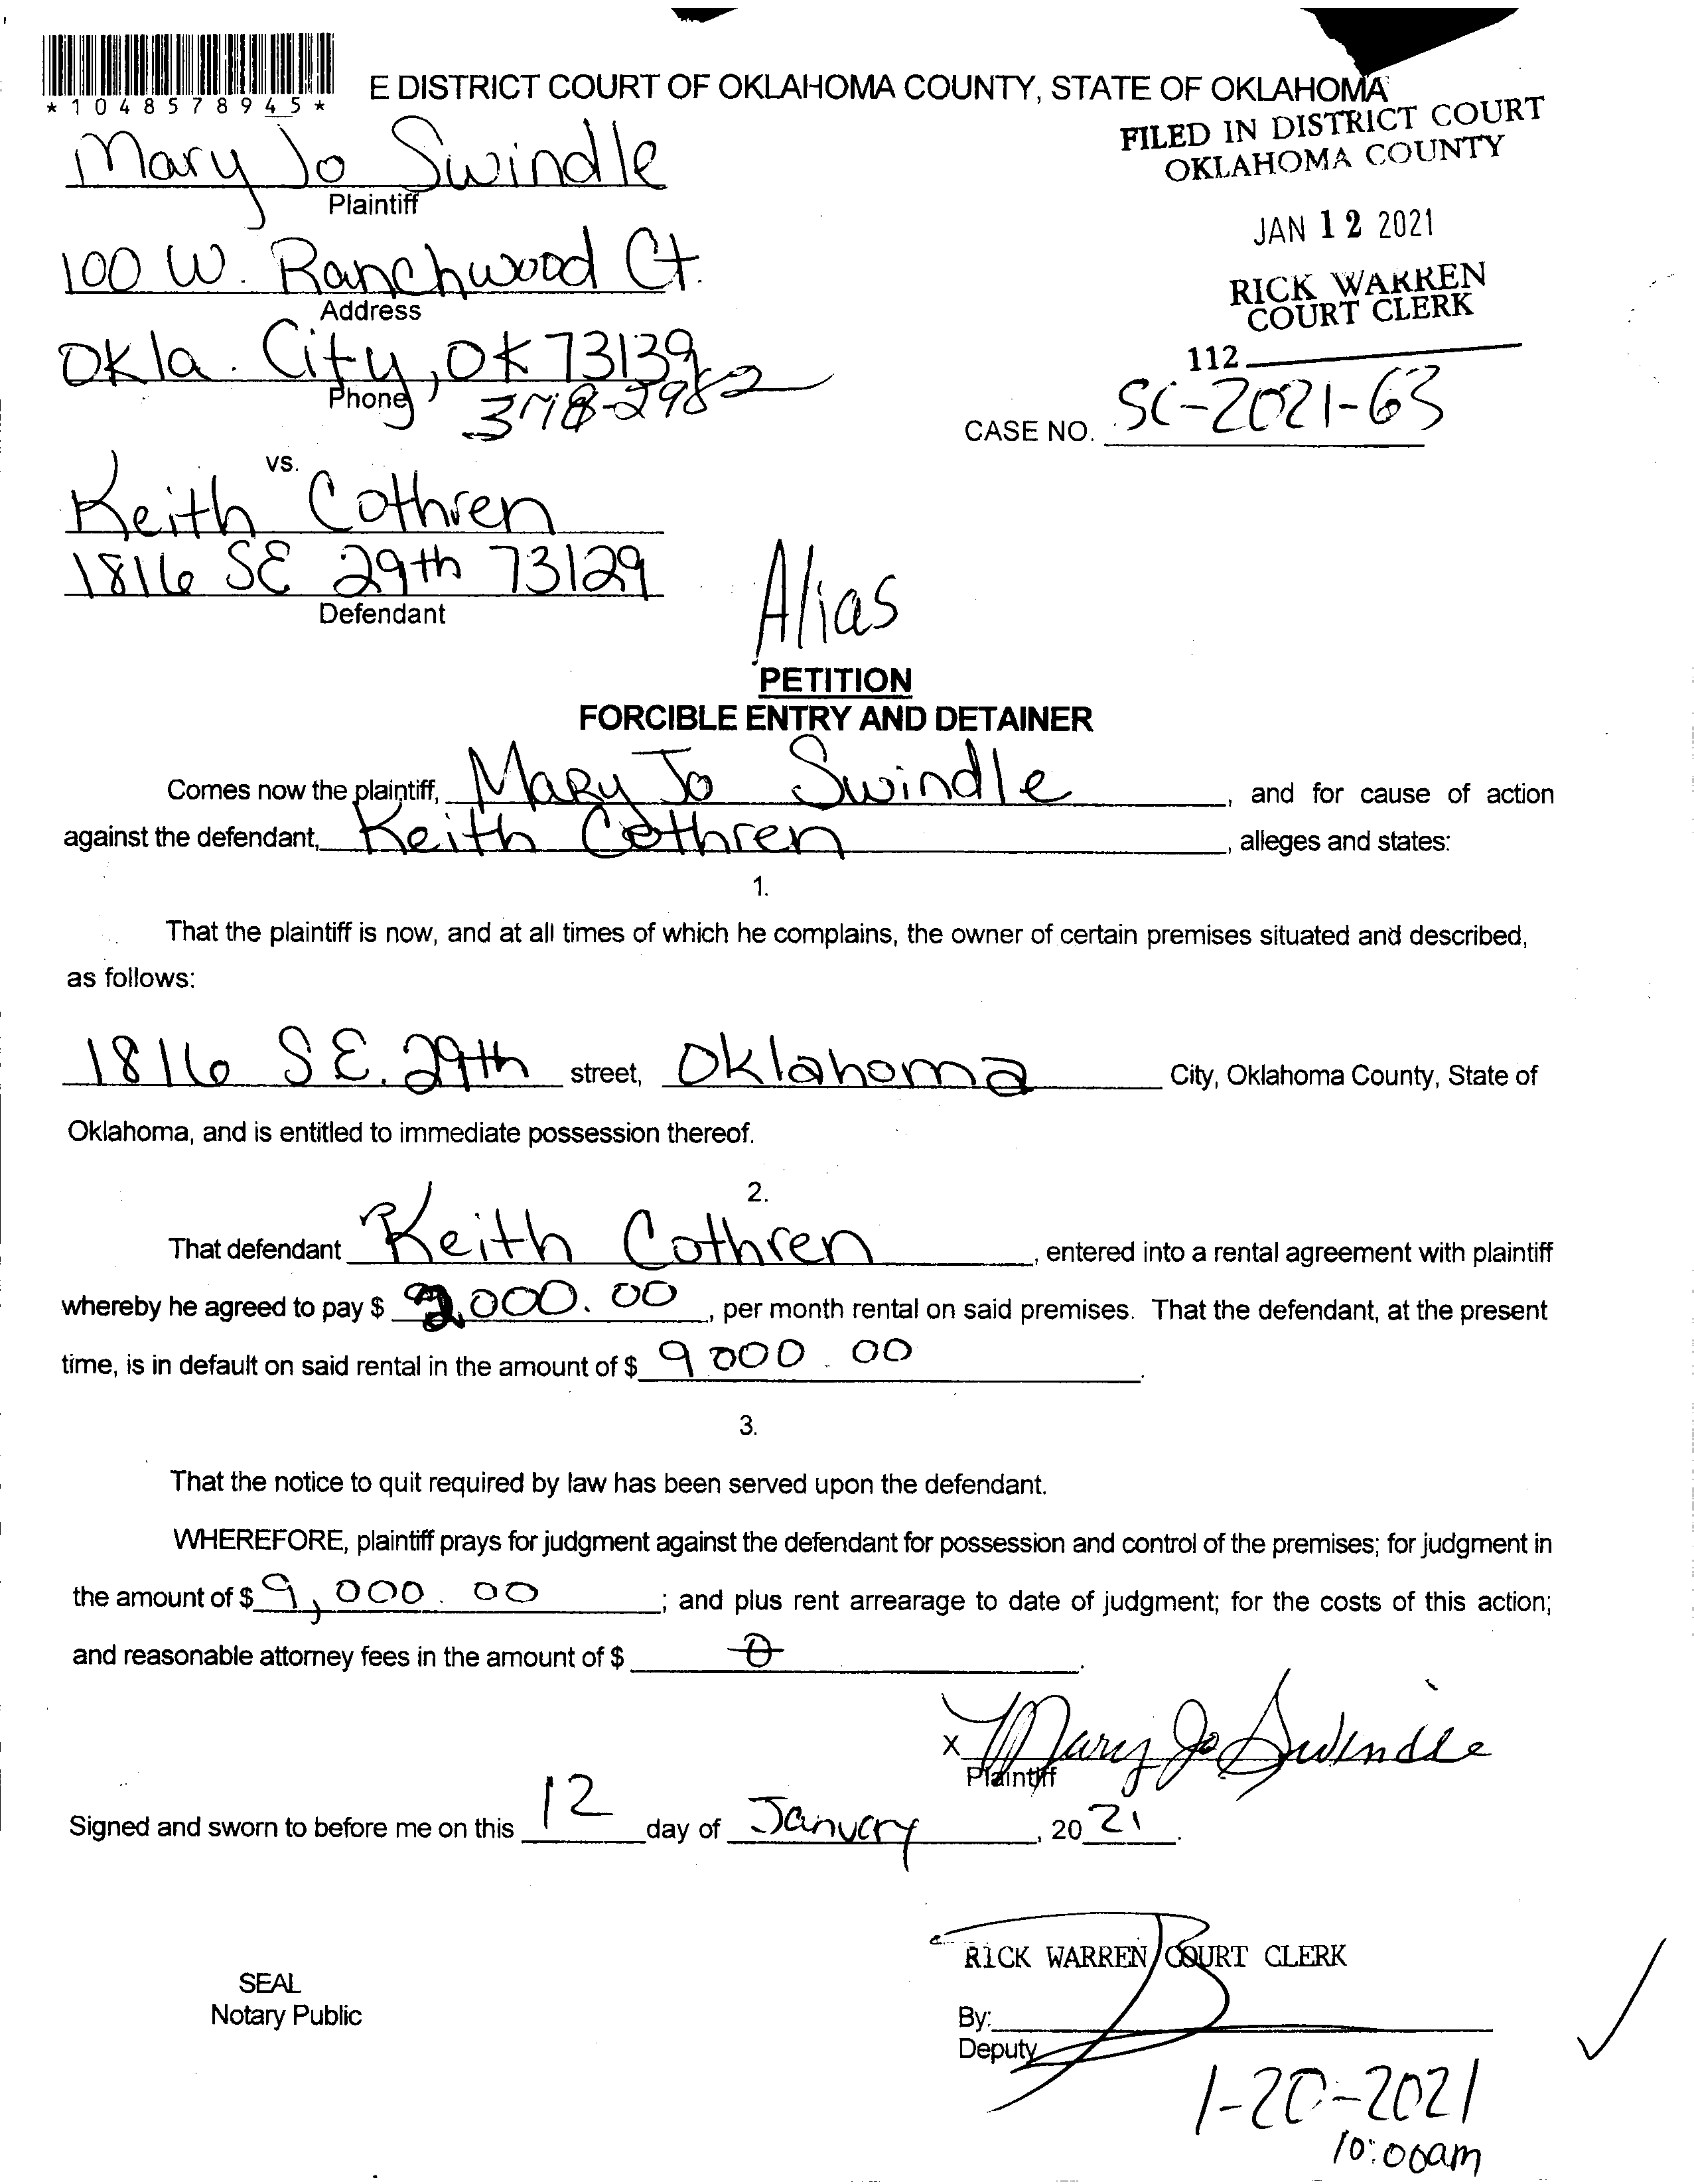 *1048578945*
E DISTRICT COURT OF OKLAHOMA COUNTY, STATE OF OKLAHOMA
FILED IN DISTRICT COURT
OKLAHOMA COUNTY
JAN 12 2021
RICK WARREN
COURT CLERK
112
CASE NO. SC-2021-63
Mary Jo Swindle
Plaintiff
100 W. Ranchwood Ct.
Address
Okla. City, OK 73139
Phone 378-2982
vs.
Keith Cothren
1816 SE 29th 73129
Defendant
Alias
PETITION
FORCIBLE ENTRY AND DETAINER
Comes now the plaintiff, Mary Jo Swindle, and for cause of action
against the defendant, Keith Cothren, alleges and states:
1.
That the plaintiff is now, and at all times of which he complains, the owner of certain premises situated and described,
as follows:
1816 S.E. 29th street, Oklahoma City, Oklahoma County, State of
Oklahoma, and is entitled to immediate possession thereof.
2.
That defendant Keith Cothren, entered into a rental agreement with plaintiff
whereby he agreed to pay $ 2,000.00, per month rental on said premises. That the defendant, at the present
time, is in default on said rental in the amount of $ 9000.00.
3.
That the notice to quit required by law has been served upon the defendant.
WHEREFORE, plaintiff prays for judgment against the defendant for possession and control of the premises; for judgment in
the amount of $ 9,000.00; and plus rent arrearage to date of judgment; for the costs of this action;
and reasonable attorney fees in the amount of $ 0.
X Mary Jo Swindle
Plaintiff
Signed and sworn to before me on this 12 day of January, 2021.
RICK WARREN COURT CLERK
SEAL
Notary Public
By:
Deputy
1-20-2021
10:00am